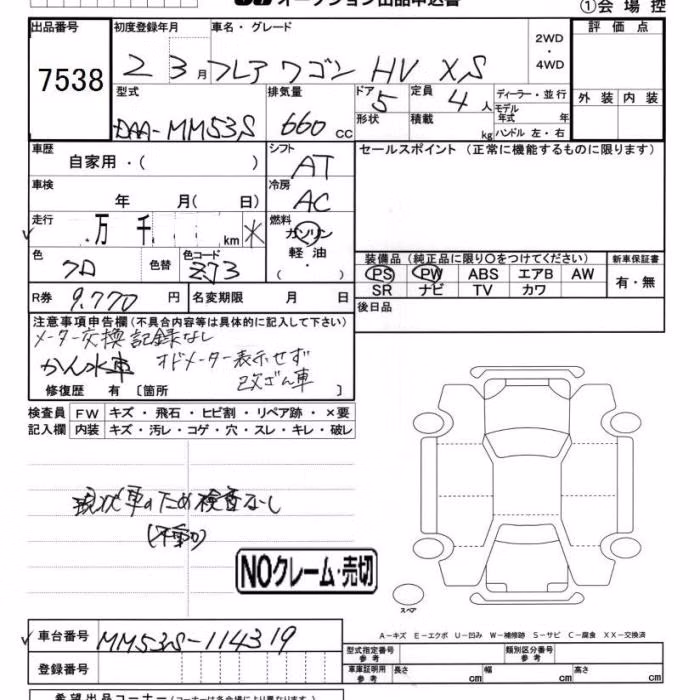 オークション出品申込書
①会場控
出品番号
7538
初度登録年月
2 3月
車名・グレード
フレアワゴン HV XS
2WD
・
4WD
評価点
外装 内装
型式
DAA-MM53S
排気量
660 cc
ドア
5
定員
4人
形状
積載
kg
ディーラー・並行
モデル
年式 年
ハンドル 左・右
車歴
自家用・( )
シフト
AT
セールスポイント (正常に機能するものに限ります)
車検
年 月( 日)
冷房
AC
走行
万 千 km ※
燃料
ガソリン
軽油
( ・ )
色
クロ
色替
色コード
ZJ3
装備品 (純正品に限り○をつけてください)
PS PW ABS エアB AW
SR ナビ TV カワ
新車保証書
有・無
R券
9.770 円
名変期限 月 日
後日品
注意事項申告欄 (不具合内容等は具体的に記入して下さい)
メーター交換記録なし
かん水車 オドメーター表示せず
改ざん車
修復歴 有 〔箇所 〕
検査員 FW キズ・飛石・ヒビ割・リペア跡・×要
記入欄 内装 キズ・汚レ・コゲ・穴・スレ・キレ・破レ
現状車のため検査なし
(不動)
NOクレーム・売切
スペア
A-キズ E-エクボ U-凹み W-補修跡 S-サビ C-腐食 XX-交換済
車台番号
MM53S-114319
登録番号
型式指定番号
参考
類別区分番号
参考
車庫証明用
参考
長さ cm 幅 cm 高さ cm
希望出品コーナー (コーナーは各会場により異なります)